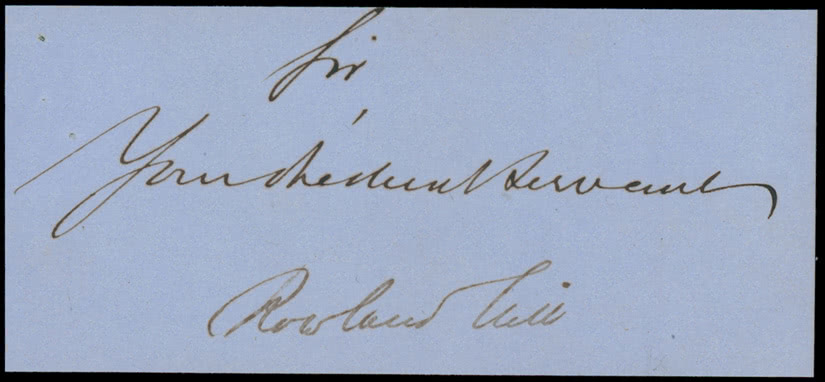 Sir
Your Obedient Servant
Rowland Hill